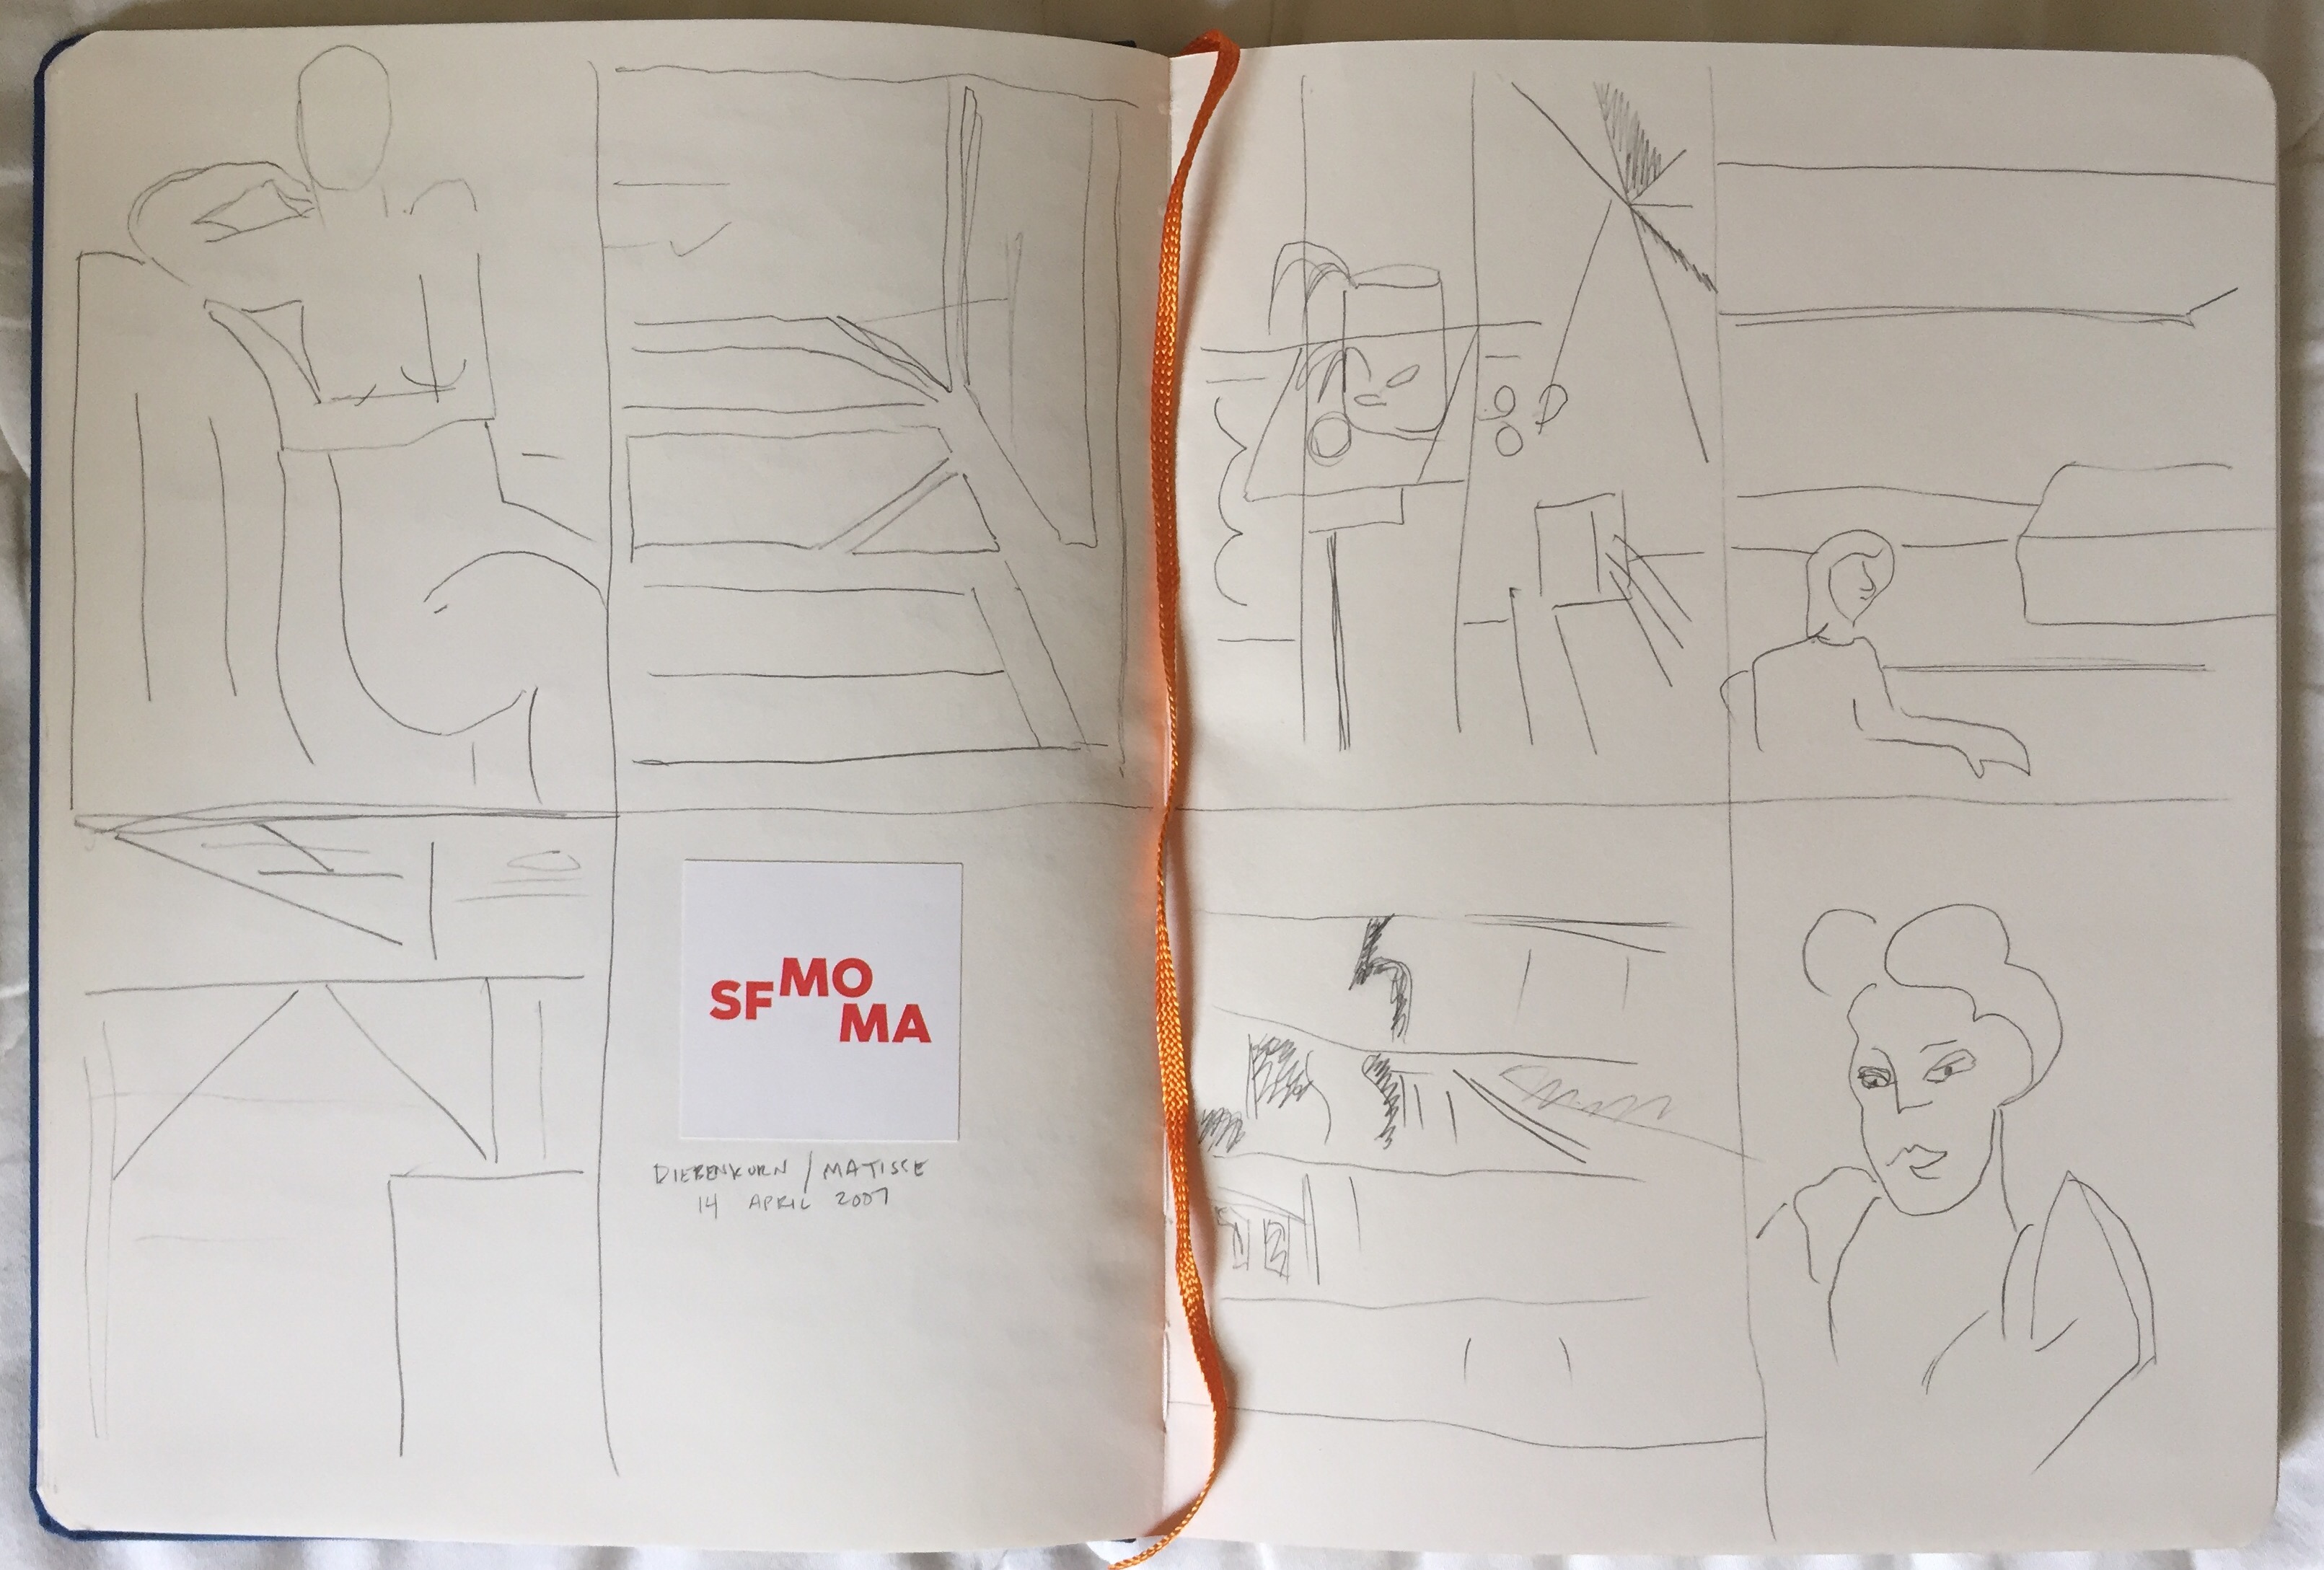 SFMOMA
DIEBENKORN / MATISSE
14 APRIL 2007